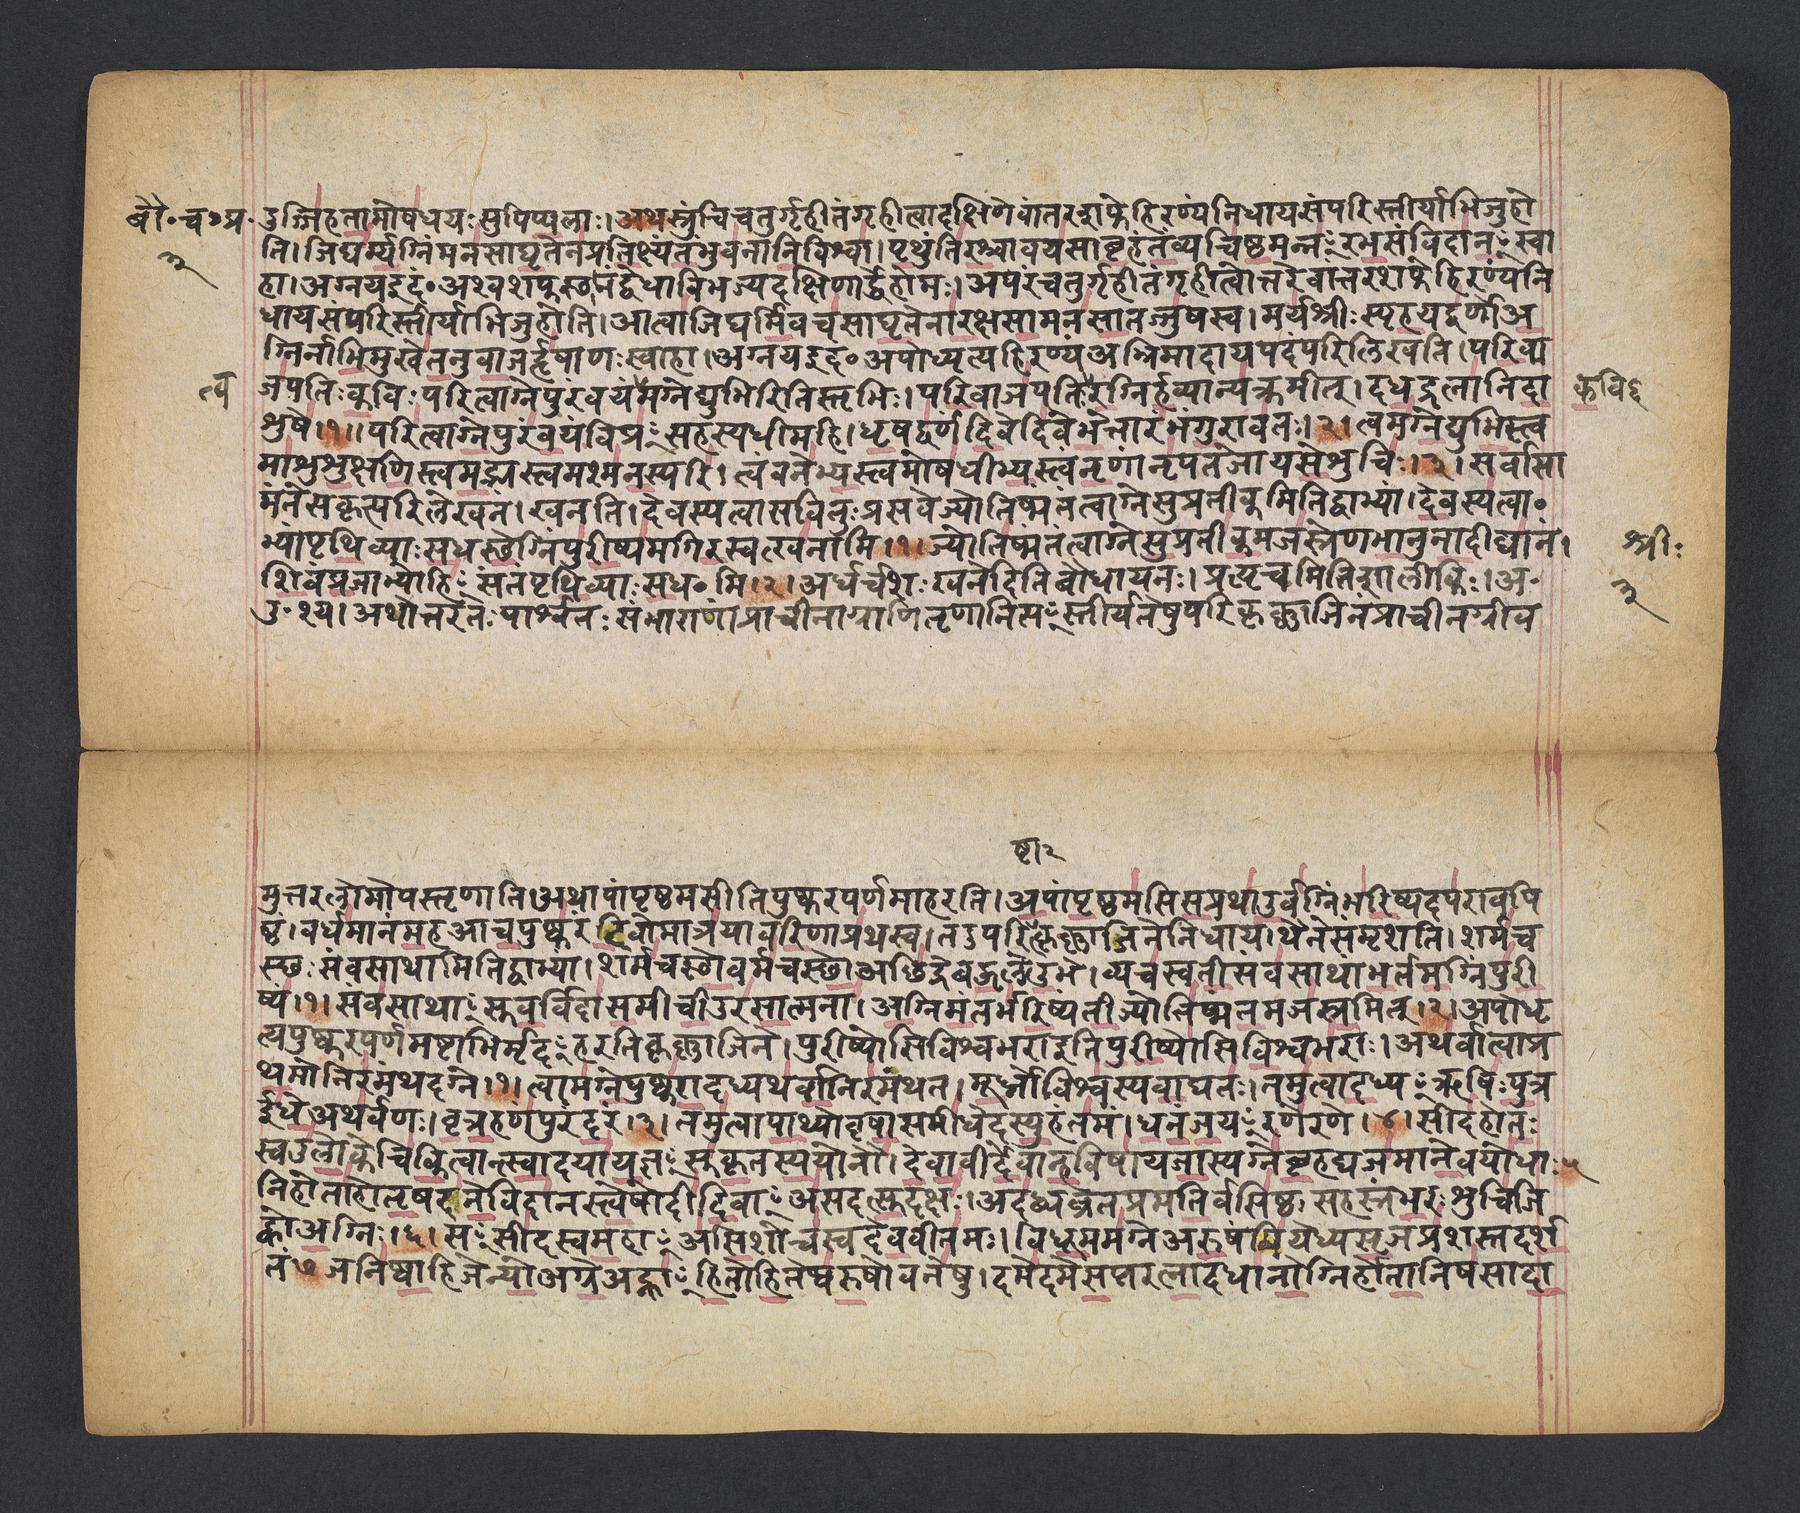 बौ॰च॰प्र॰
३
उज्जिहतामोषधयः सुपिप्पलाः। अथस्रुचिचतुर्गृहीतंगृहीत्वादक्षिणेवांतरशफेहिरण्यंनिधायसंपरिस्तीर्याभिजुहो
ति। जिघर्म्यग्निंमनसाघृतेनप्रतिक्ष्यंतंभुवनानिविश्वा। पृथुंतिरश्चावयसाबृहंतंव्यचिष्ठमन्नꣳरभसंविदानꣳस्वा
हा। अग्नयइदं॰ अश्वशफस्थमंद्वेधाविभज्यदक्षिणार्द्धेहोमः। अपरंचतुर्गृहीतंगृहीत्वोत्तरेवात्तरशफेहिरण्यंनि
धायसंपरिस्तीर्याभिजुहोति। आत्वाजिघर्मिवचसाघृतेनारक्षसामनसातज्जुषस्व। मर्यश्रीः स्पृहयद्वर्णोअ
ग्निर्नाभिमृशेतनुवाजर्हृषाणः स्वाहा। अग्नयइदं॰ अपोध्धृत्यहिरण्यंअभ्रिमादायपदंपरिलिखति। परिवा
त्व
जपतिःकविः परित्वाग्नेपुरंवयंमग्नेद्युभिरितिस्तृभिः। परिवाजपतिरग्निर्हव्यान्यक्रमीत्। दधद्रत्नानिदा
कविः
शुषे।१।। परित्वाग्नेपुरंवयंविप्रꣳसहस्यधीमहि। धृषद्वर्णंदिवेदिवेभेत्तारंभंगुरावतः।२। त्वमग्नेद्युभिस्त्व
माशुशुक्षणिस्त्वमद्भ्यस्त्वमश्मनस्परि। त्वंवनेभ्यस्त्वमोषधीभ्यस्त्वंनृणांनृपतेजायसेशुचिः।३। सर्वासा
मंतेसकृत्परिलेखनं। खनति। देवस्यत्वासवितुःप्रसवेज्योतिष्मंतंत्वाग्नेसुप्रतीकमितिद्वाभ्यां। देवस्यत्वा॰
भ्यांपृथिव्याः सधस्थेग्निंपुरीष्यमंगिरस्वत्खनामि।१। ज्योतिष्मंतंत्वाग्नेसुप्रतीकमजस्रेणभानुनादीद्यानं।
श्रीः
शिवंप्रजाभ्योहिꣳसंतंपृथिव्याः सध॰मि।२। अर्धर्चशः खनेदितिबौधायनः। प्रत्यृचमितिशालीकिः। अ॰
३
उ॰श्य। अथोत्तरतः पार्श्वतः संभाराणांप्राचीनाग्राणितृणानिसꣳस्तीर्यतेषुपरिकृष्णाजिनंप्राचीनग्रीव
ष्टा२
मुत्तरलोमोपस्तृणाति। अथापांपृष्ठमसीतिपुष्करपर्णमाहरति। अपांपृष्ठमसिसप्रथाउर्वग्निंभरिष्यदपरावपि
ष्ठं। वर्धमानंमहआचपुष्करंदिवोमात्रयावरिणाप्रथस्व। तदुपरिकृष्णाजिनंनिधाय। अथैनेसंमृशति। शर्मच
स्थः संवसाथामितिद्वाभ्यां। शर्मचस्थोवर्मचस्थोअछिद्रेबहुलेउभे। व्यचस्वतीसंवसाथांभर्तमग्निंपुरी
ष्यं।१। संवसाथाꣳसुवर्विदासमीचीउरसात्मना। अग्निमंतर्भरिष्यंतीज्योतिष्मंतमजस्रमित्।२। अपोधृ
त्यपुष्करपर्णमष्टाभिर्मृदꣳहरतिकृष्णाजिने। पुरीष्योसिविश्वभराइतिपुरीष्योसिविश्वभराः। अथर्वात्वाप्र
थमोनिरमंथदग्ने।१। त्वामग्नेपुष्करादध्यथर्वानिरमंथत। मूर्ध्नोविश्वस्यवाघतः। तमुत्वादध्यꣳऋषिः पुत्र
ईधेअथर्वणः। वृत्रहणंपुरंदरं।३। तमुत्वापाथ्योवृषासमीधेदस्युहंतमं। धनंजयꣳरणेरणे।४। सीदहोतः
स्वउलोकेचिकित्वान्त्सादयायज्ञꣳसुकृतस्ययोनौ। देवावीर्देवान्हविषायजास्यग्नेबृहद्यजमानेवयोधाः५
निहोताहोतृषदनेविदानस्त्वेषोदीदिवाꣳअसदत्सुदक्षः। अदब्धव्रतप्रमतिर्वसिष्ठः सहस्रंभरः शुचिजि
ह्वोअग्निः।६। सꣳसीदस्वमहाꣳअसिशोचस्वदेववीतमः। विधूममग्नेअरुषंमियेध्यसृजप्रशस्तदर्श
तं७ जनिष्वाहिजेन्योअग्रेअह्नाꣳहितोहितेष्वरुषोवनेषु। दमेदमेसप्तरत्नादधानोग्निर्होतानिषसादा